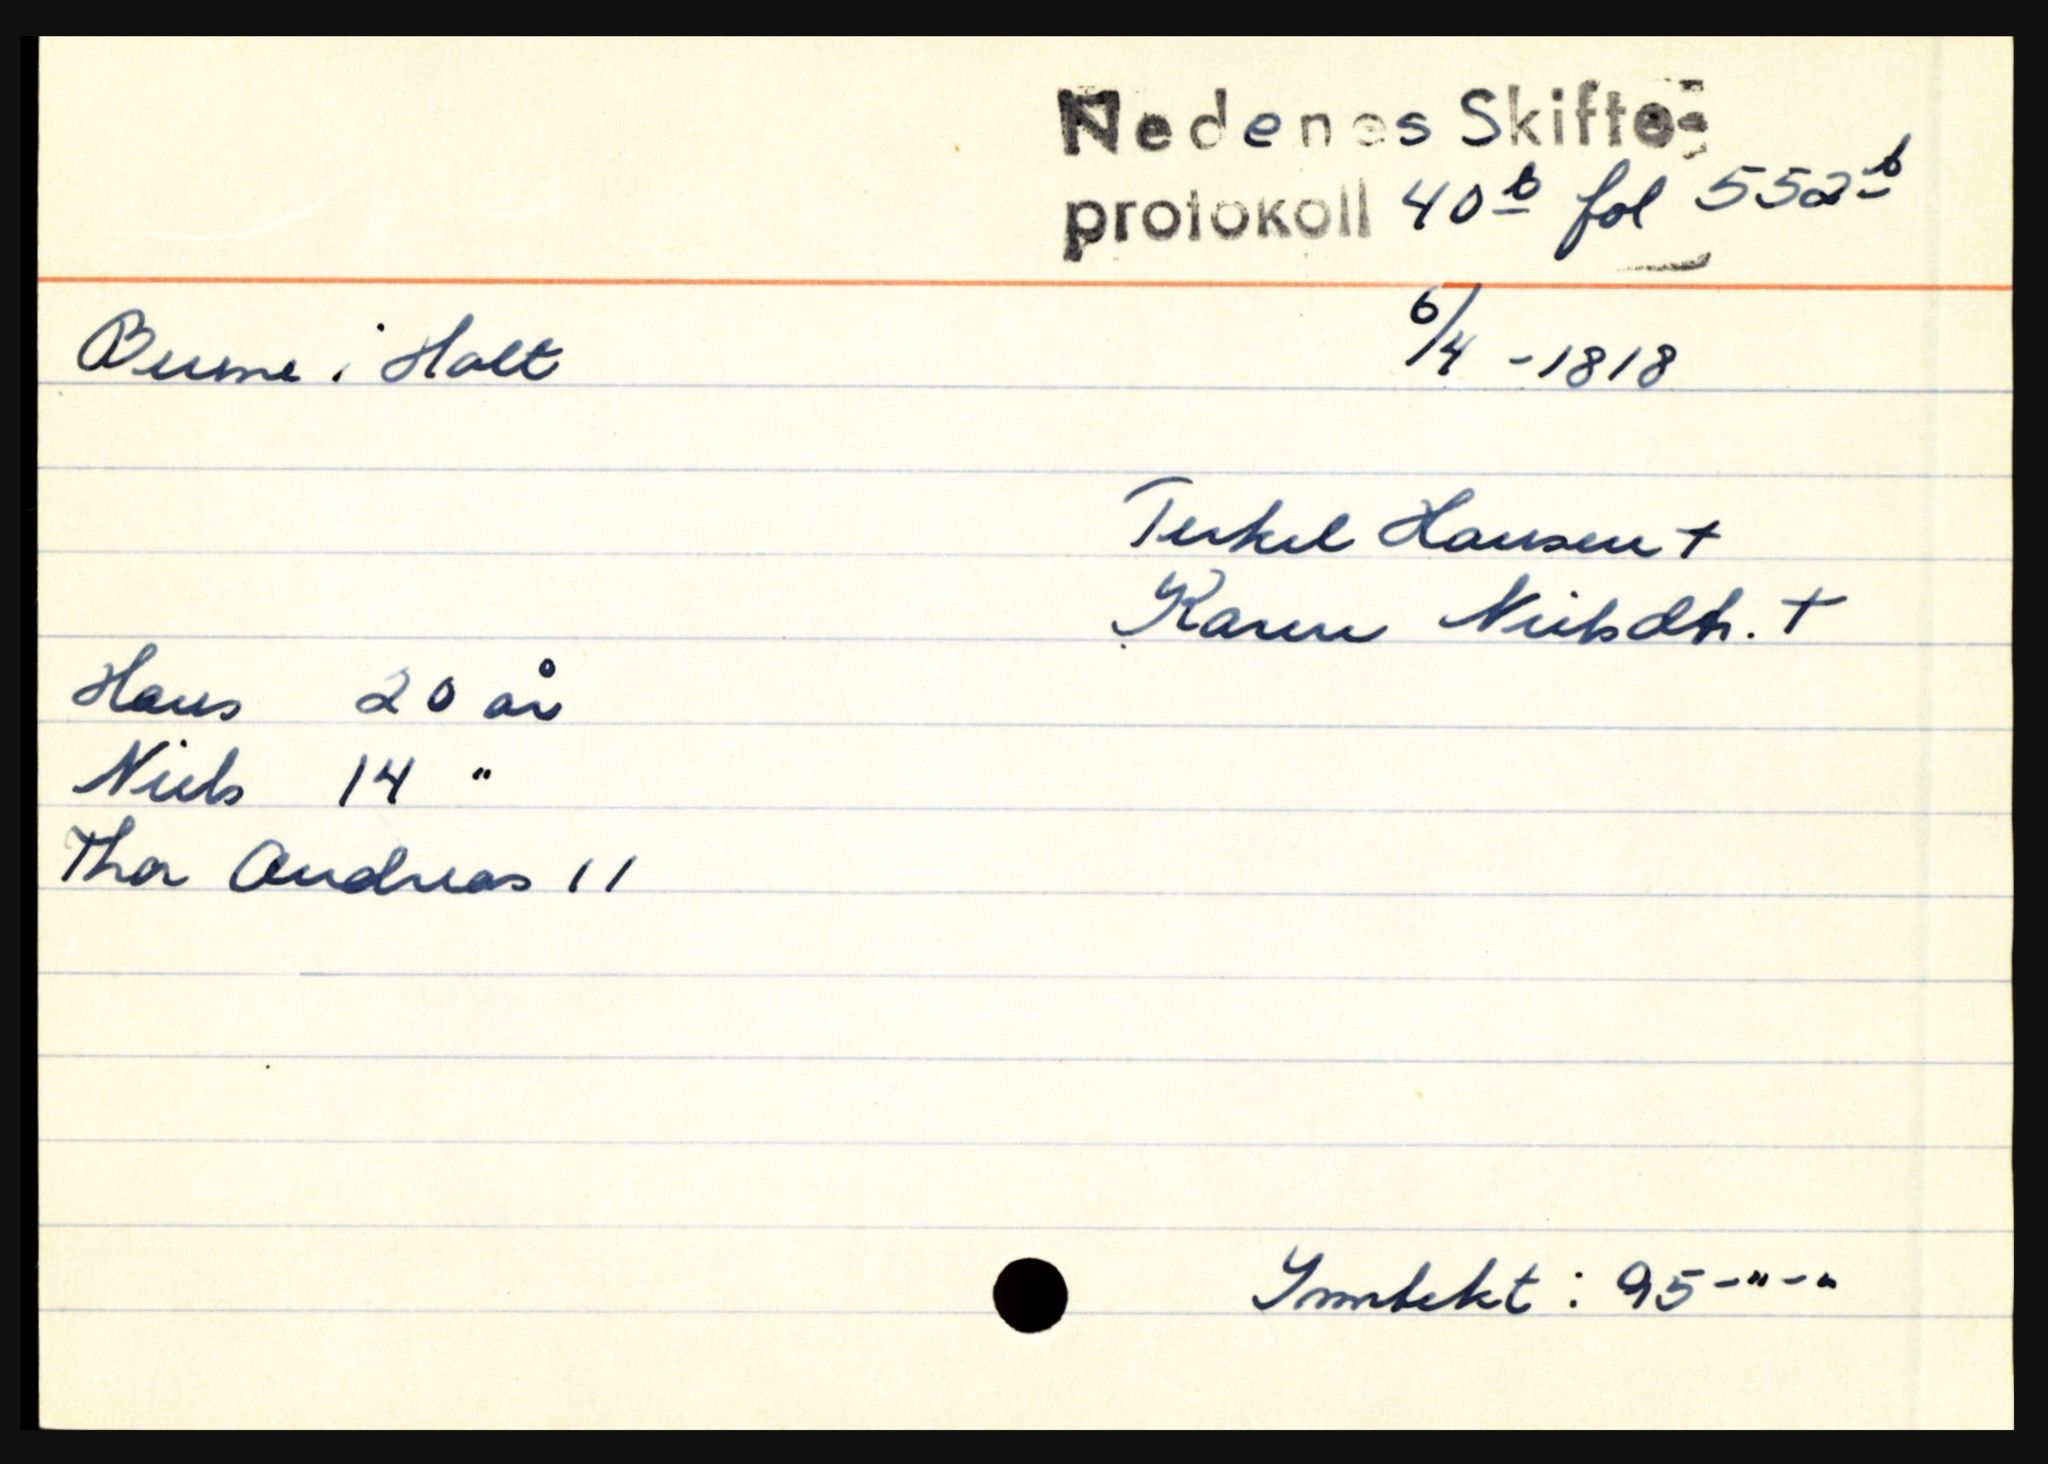 Nedenes Skifte-
protokoll 40b fol 552b
i Holt 6/4 -1818
Terkel Hansen +
Karen Nielsdtr. +
Hans 20 år
Niels 14 "
Thor Andreas 11
Inntekt : 95-"-"